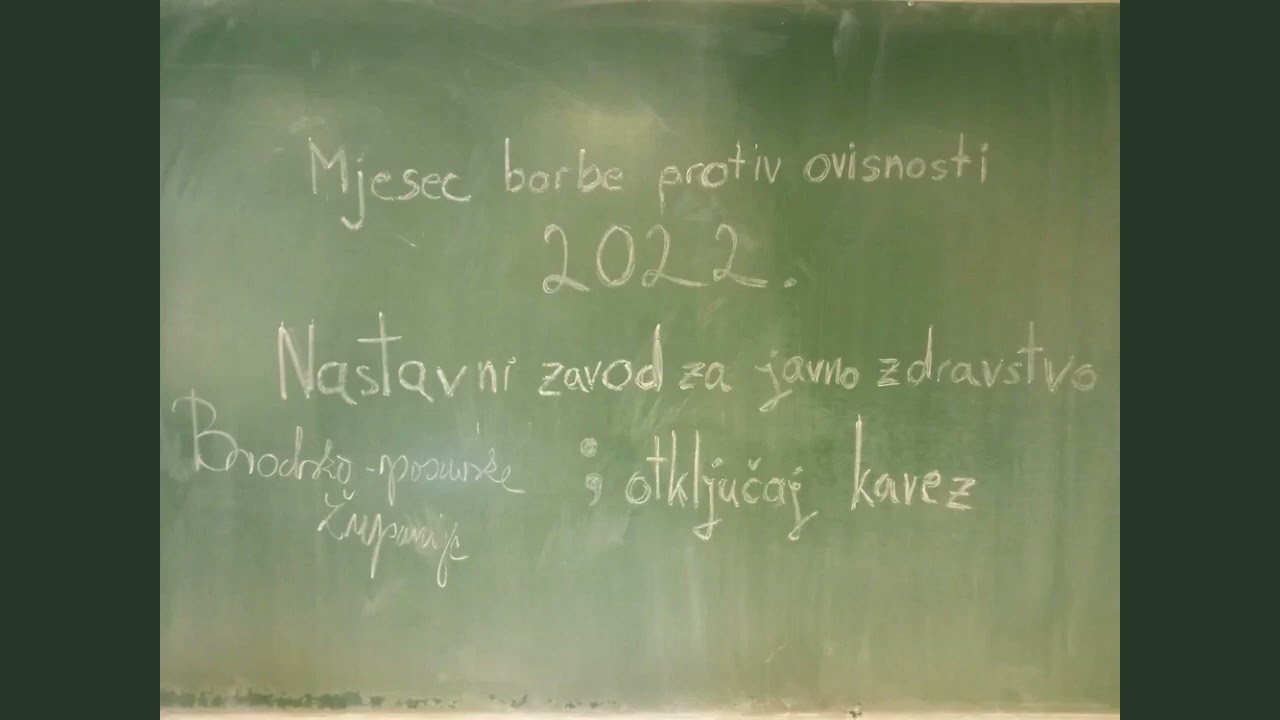 Mjesec borbe protiv ovisnosti
2022.
Nastavni zavod za javno zdravstvo
Brodsko-posavske ; otključaj kavez
Županije